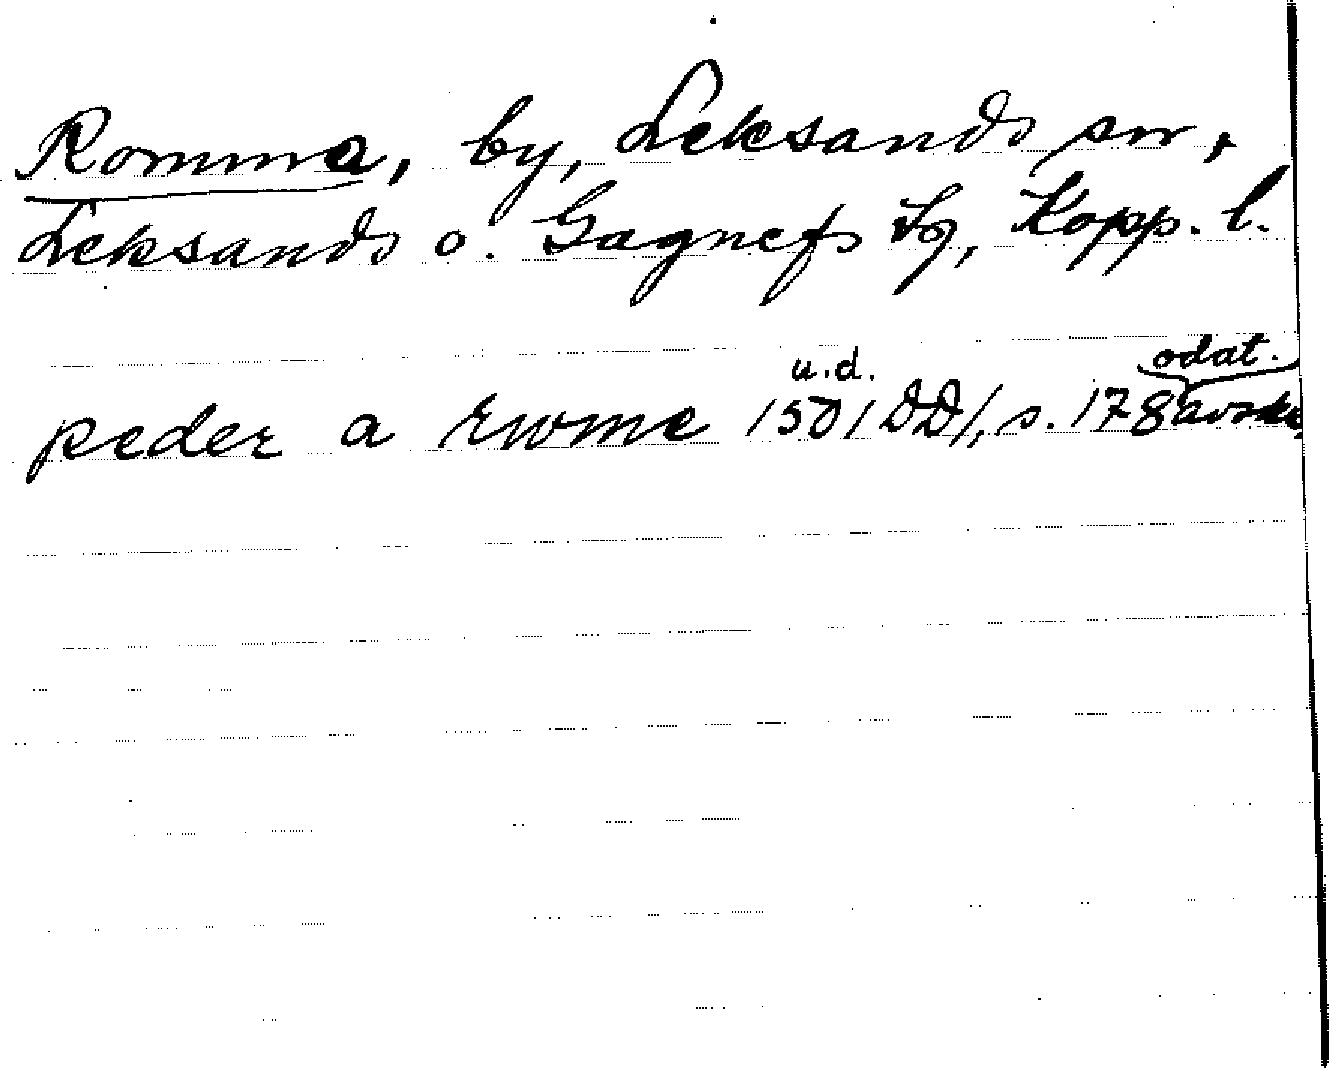 Romma, by, Leksands sn,
Leksands o. Gagnefs tg, Kopp. l.
u.d. odat.
peder a rwme 1501 DD1, s. 178 avskr.